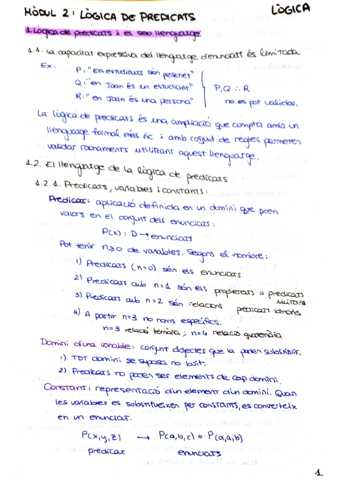 LÒGICA
MÒDUL 2: LÒGICA DE PREDICATS
1. Lògica de predicats i el seu llenguatge
1.1. La capacitat expressiva del llenguatge d'enunciats és limitada
Ex: P: "Els estudiants són persones"
Q: "en Joan és un estudiant" P,Q ∴ R
R: "en Joan és una persona" no es pot validar.
La lògica de predicats és una ampliació que compta amb un
llenguatge formal més ric i amb conjunt de regles permeten
validar raonaments utilitzant aquest llenguatge.
1.2. El llenguatge de la lògica de predicats
1.2.1. Predicats, variables i constants:
Predicat: aplicació definida en un domini que pren
valors en el conjunt dels enunciats:
P(x): D → enunciats
Pot tenir n≥0 de variables. Segons el nombre:
1) Predicats (n=0) són els enunciats
2) Predicats amb n=1 són els propietats o predicats unitaris
3) Predicats amb n=2 són relacions predicats binaris
4) A partir n=3 no noms específics.
n=3 relació ternària; n=4 relació quaternària
Domini d'una variable: conjunt d'objectes que la poden substituir.
1) TOT domini se suposa no buit.
2) Predicats no poden ser elements de cap domini.
Constant: representació d'un element d'un domini. Quan
les variables es substitueixen per constants, es converteix
en un enunciat.
P(x,y,z) → P(a,b,c) o P(a,a,b)
predicat enunciats
1